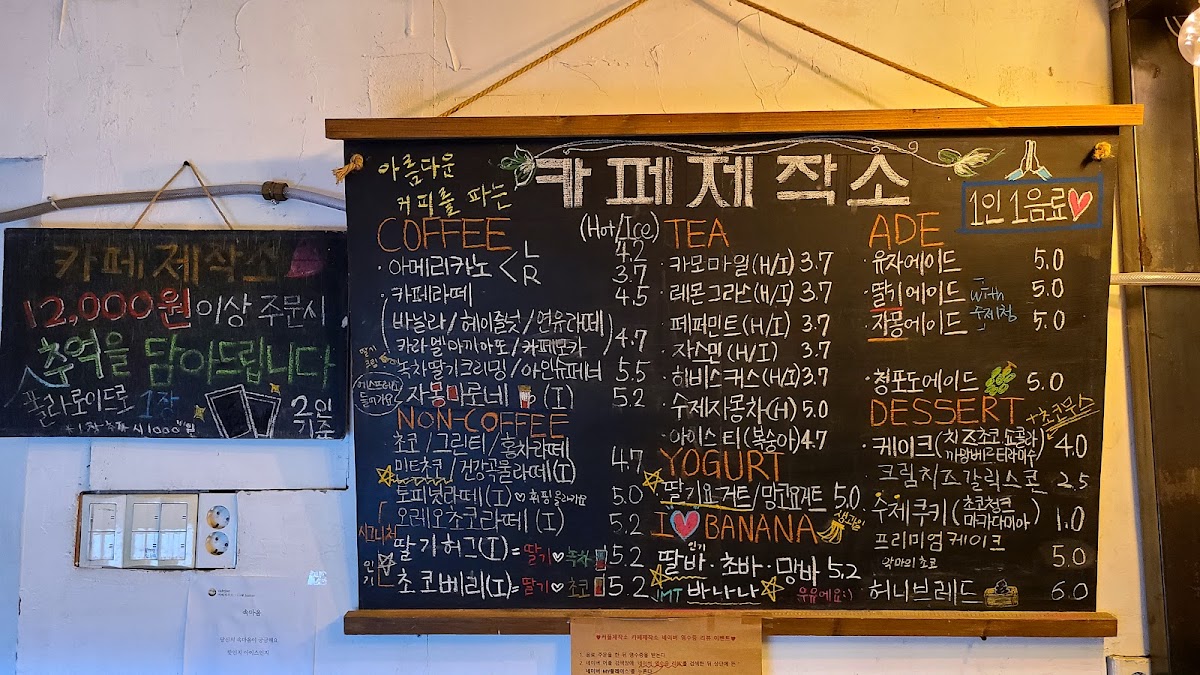 카페제작소
12,000원 이상 주문시
추억을 담아드립니다
폴라로이드로 1장
2인
기준
아름다운
커피를 파는
카페제작소
1인 1음료
COFFEE (Hot/Ice)
아메리카노 < L 4.2
R 3.7
카페라떼 4.5
바닐라/헤이즐넛/연유라떼
카라멜마끼아또/카페모카 4.7
녹차딸기크리밍/아인슈페너 5.5
에스프레소
들어가요
자몽마루네 (I) 5.2
NON-COFFEE
초코/그린티/홍차라떼
민트초코/건강곡물라떼(I) 4.7
토피넛라떼(I) 휘핑올라가요 5.0
오레오초코라떼(I) 5.2
시그니처
인기
딸기허그(I)=딸기♡녹차 5.2
초코베리(I)=딸기♡초코 5.2
TEA
카모마일(H/I) 3.7
레몬그라스(H/I) 3.7
페퍼민트(H/I) 3.7
자스민(H/I) 3.7
히비스커스(H/I) 3.7
수제자몽차(H) 5.0
아이스티(복숭아) 4.7
YOGURT
딸기요거트/망고요거트 5.0
I ♥ BANANA
생과일
인기
딸바·초바·망바 5.2
JMT 바나나 우유에요:)
ADE
유자에이드 5.0
딸기에이드 5.0
자몽에이드 5.0
with
수제청
청포도에이드 5.0
DESSERT
+초코무스
케이크(치즈초코 4.0
크림치즈갈릭스콘 2.5
수제쿠키(초코청크
마카다미아) 1.0
프리미엄케이크 5.0
악마의초코
허니브레드 6.0
속마음
♥카페제작소 네이버 영수증 리뷰 이벤트♥